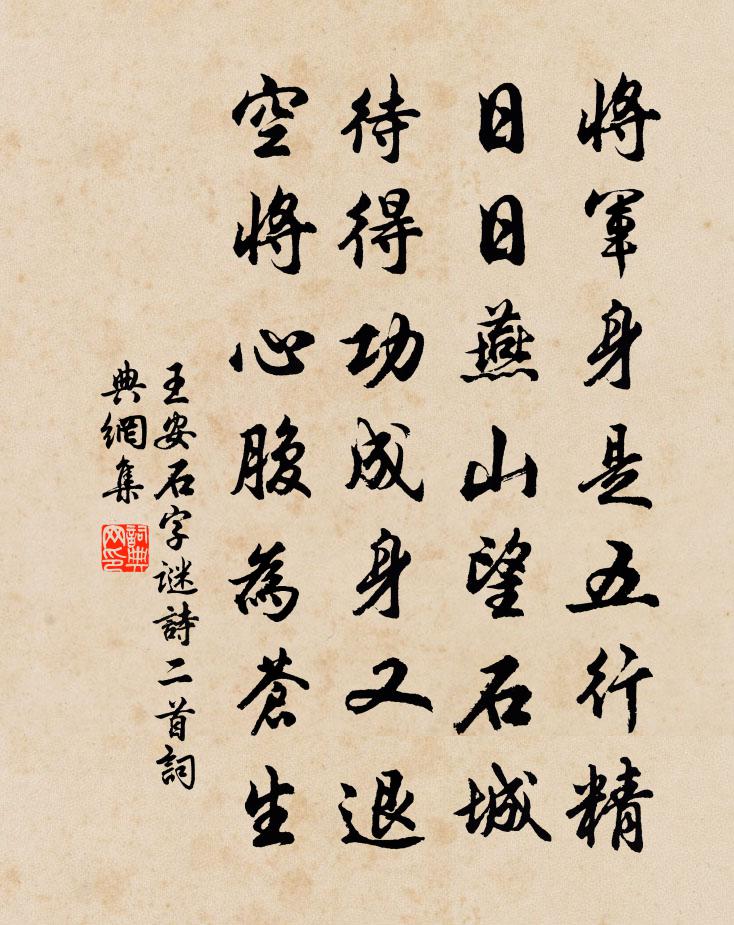 將軍身是五行精
日日燕山望石城
待得功成身又退
空將心腹為蒼生
王安石字谜詩二首詞
典網集
詞典
网印